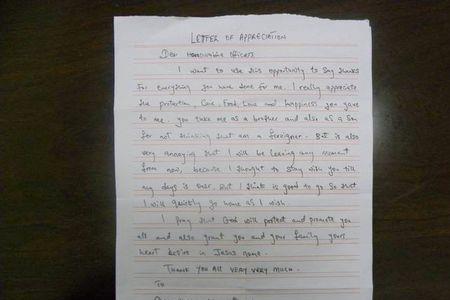 LETTER OF APPRECIATION
Dear Honourable officers
I want to use this opportunity to say thanks
for everything you have done for me. I really appreciate
the protection, Care, Food, Love and happiness you gave
to me. you take me as a brother and also as a Son
for not thinking that am a foreigner. But is also
very annoying that I will be leaving any moment
from now, because I thought to stay with you till
my days is over. But I think is good to go so that
I will quickly go home as I wish
I pray that God will protect and promote you
all and also grant you and your family yours
heart desire in Jesus name.
THANK YOU ALL VERY VERY MUCH.
To